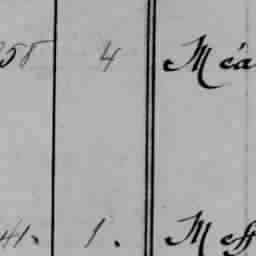 58 4 Méa
41. 1. Meff